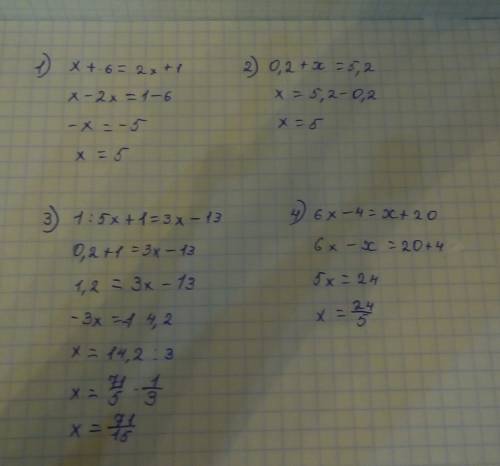 1) x + 6 = 2x + 1
x - 2x = 1 - 6
-x = -5
x = 5
2) 0,2 + x = 5,2
x = 5,2 - 0,2
x = 5
3) 1 : 5x + 1 = 3x - 13
0,2 + 1 = 3x - 13
1,2 = 3x - 13
-3x = -14,2
x = 14,2 : 3
x = 71/5 · 1/3
x = 71/15
4) 6x - 4 = x + 20
6x - x = 20 + 4
5x = 24
x = 24/5